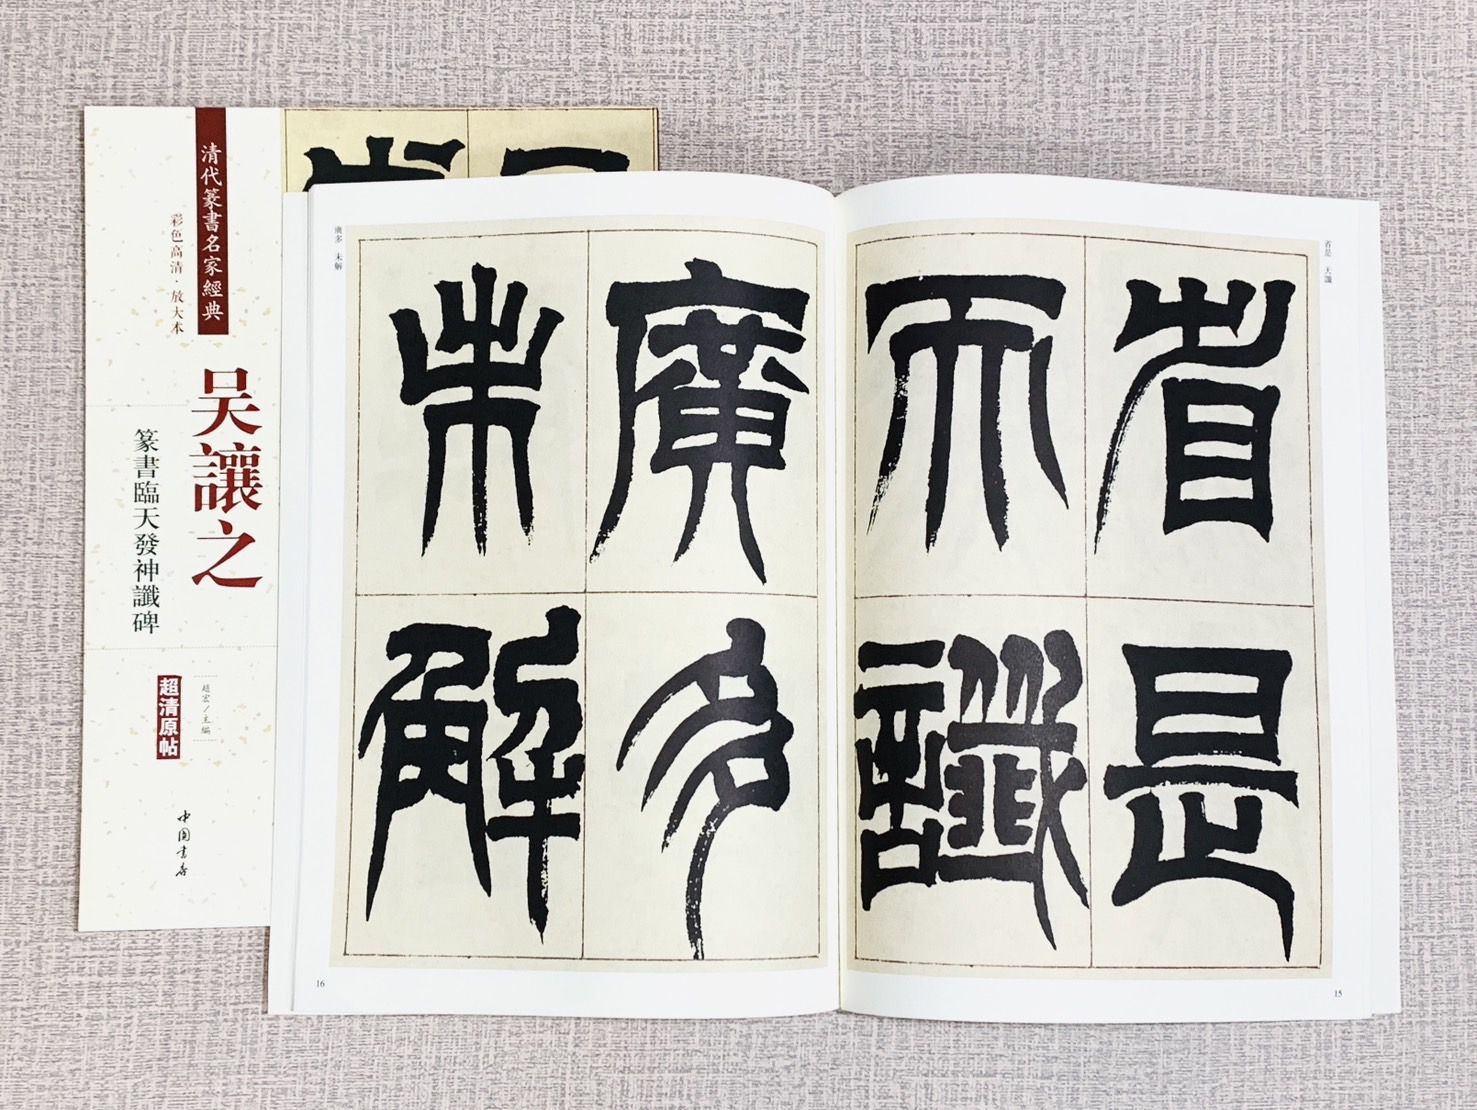 清代篆書名家經典
彩色高清·放大本
吴讓之
篆書臨天發神讖碑
趙宏/主編
超清原帖
中國書店
省是 天讖
省是
天讖
15
廣多 未解
廣多
未解
16